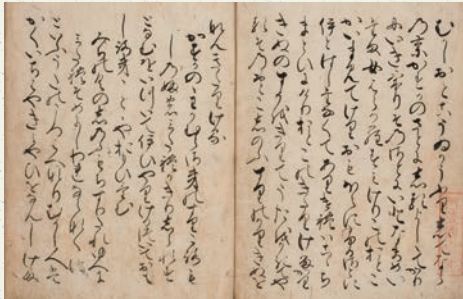 むかしおとこうゐかうふりしてなら
の京かすかのさとにしるよしゝてかり
にいきけりそのさとにいとなまめい
たる女はらからすみけりこのおとこ
かいまみてけりおもほえすふるさとに
いとはしたなくてありけれは心ち
まとひにけりおとこのきたりけるかり
きぬのすそをきりてうたをかきてや
るそのおとこしのふすりのかりきぬを
なんきたりける
かすかのゝわかむらさきのすり衣
しのふのみたれかきりしられす
となむをいつきていひやりけるついておも
しろきことゝもやおもひけむ
みちのくの忍もちすりたれゆへに
みたれそめにし我ならなくに
といふうたのこゝろはへなりむかし人は
かくいちはやきみやひをなんしける